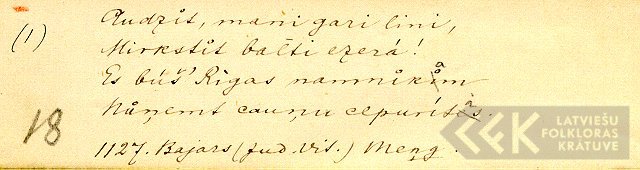 (1) Audzít, mani gari lini,
Mirkstít balti ezerá!
Es búš' Rígas namníkám
Nůņemt cauņu cepurítes.
18
1127. Bajars (Jud. Vis.) Meņģ.
LATVIEŠU
FOLKLORAS
KRĀTUVE